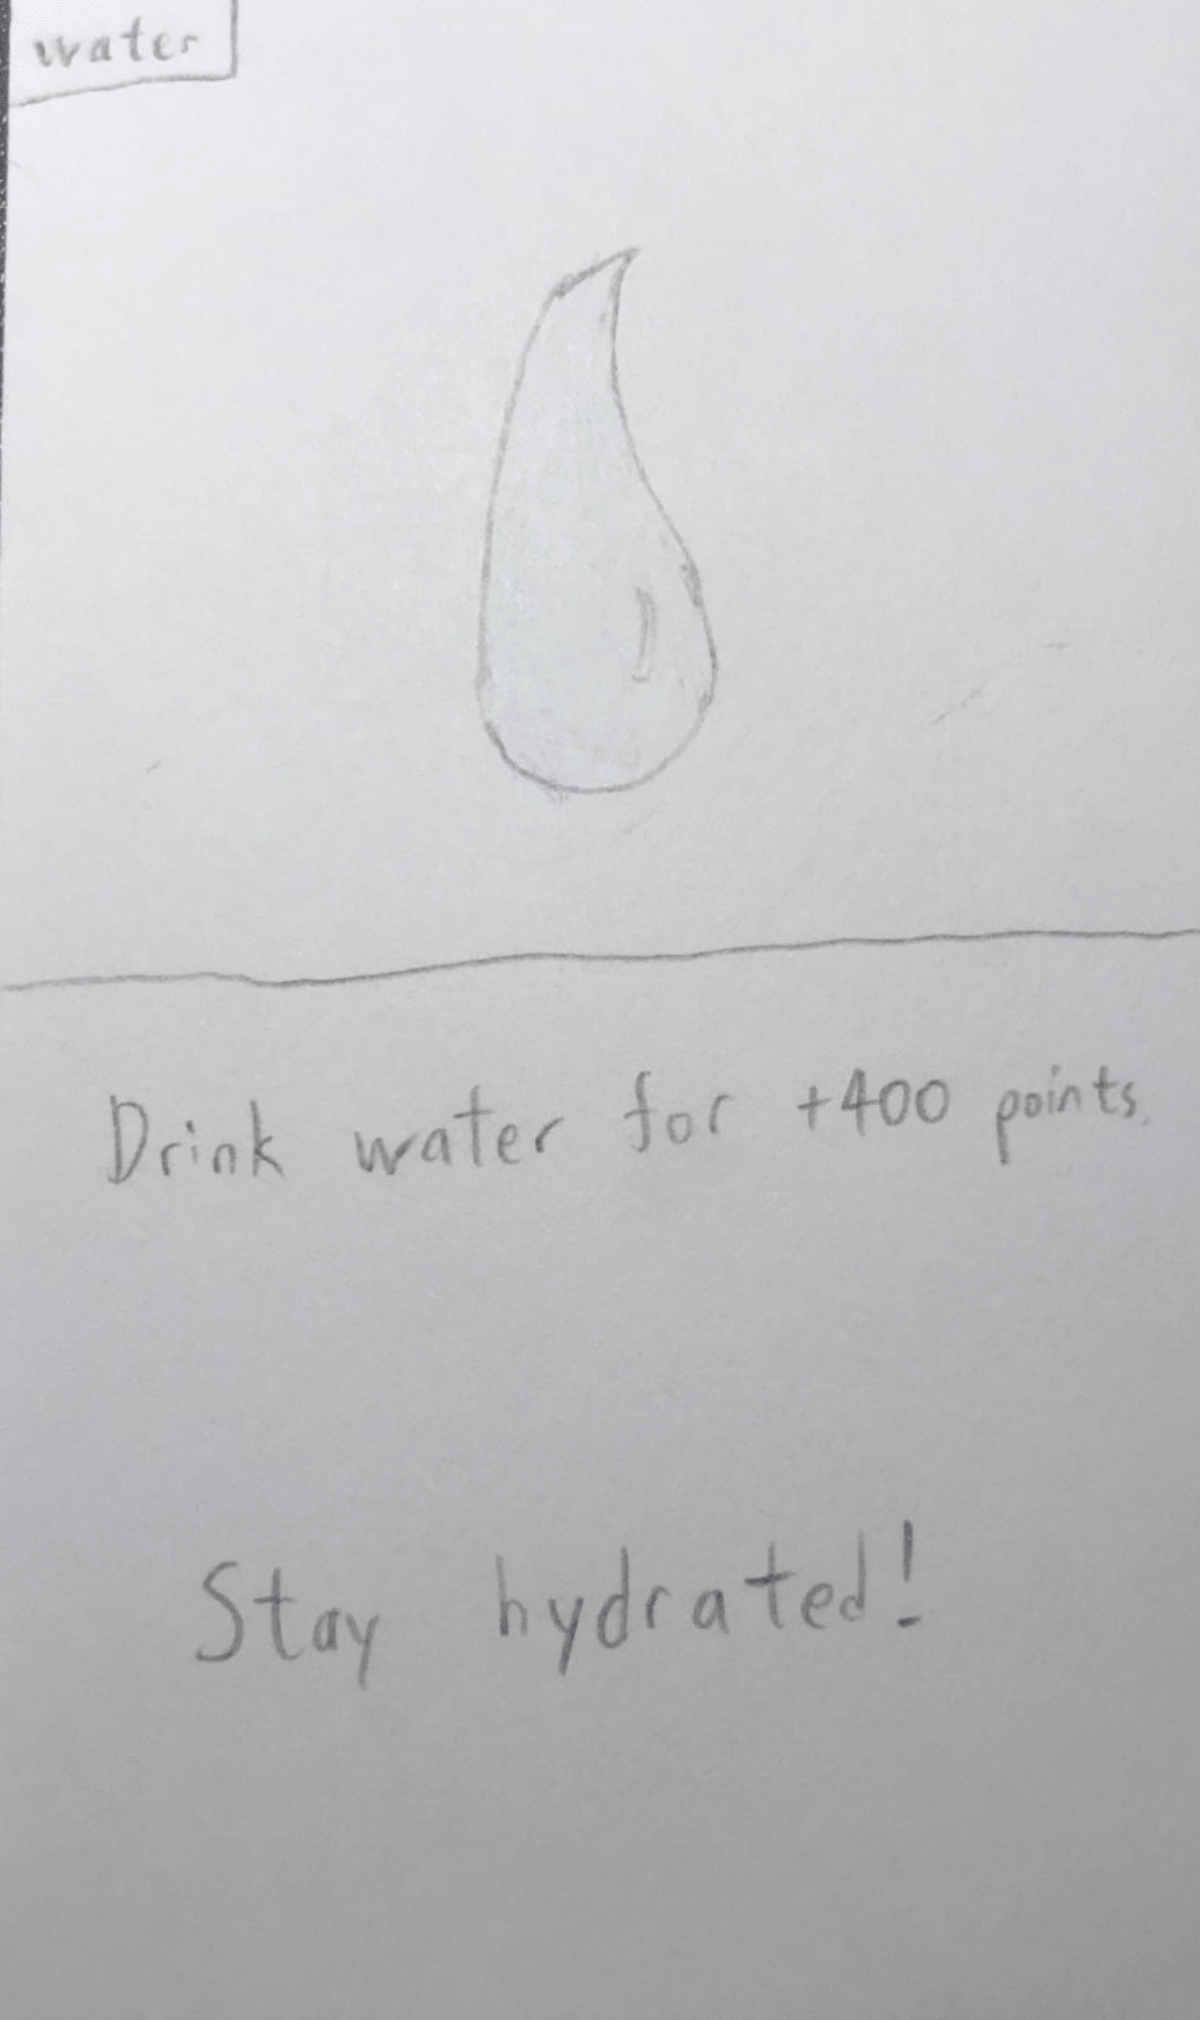 water
Drink water for +400 points.
Stay hydrated!